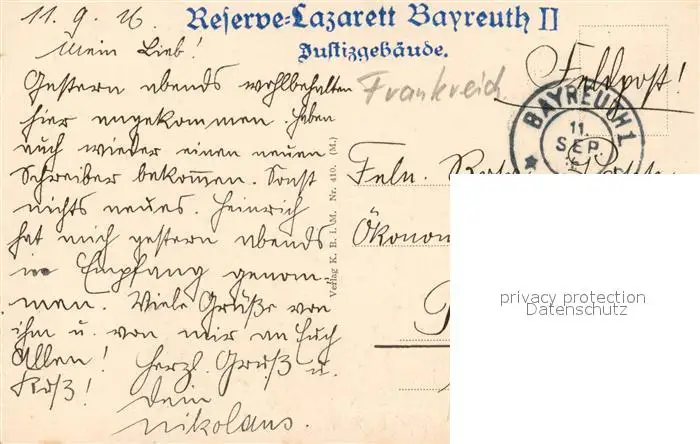 11. 9. 16.
Reserve-Lazarett Bayreuth II
Justizgebäude.
Mein Lieb!
Gestern abends wohlbehalten
hier angekommen. Haben
auch wieder einen neuen
Schreiber bekommen. Sonst
nichts neues. Heinrich
hat mich gestern abends
in Empfang genom-
men. Viele Grüße von
ihm u. von mir an Euch
Allen! Herzl. Gruß u.
Kuß!
Dein
Nikolaus.
Frankreich
Feldpost!
BAYREUTH 1
11.
SEP.
Verlag K. B. i. M. Nr. 410. (M.)
Feln.
Ökonom
privacy protection
Datenschutz